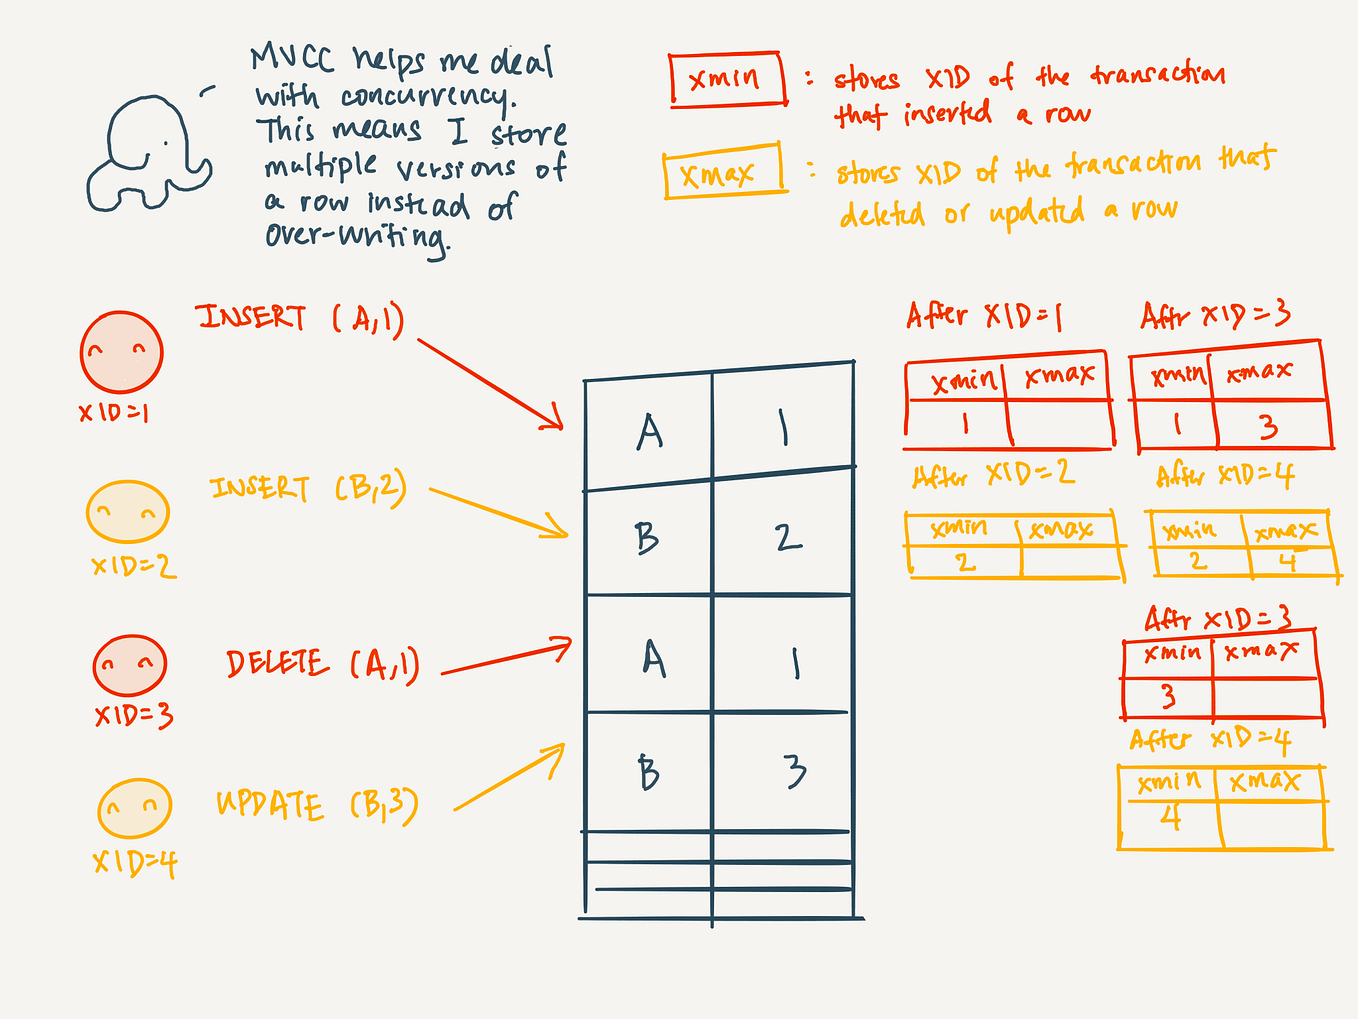 MVCC helps me deal
with concurrency.
This means I store
multiple versions of
a row instead of
over-writing.
xmin : stores XID of the transaction
that inserted a row
xmax : stores XID of the transaction that
deleted or updated a row
INSERT (A,1)
XID=1
INSERT (B,2)
XID=2
DELETE (A,1)
XID=3
UPDATE (B,3)
XID=4
A 1
B 2
A 1
B 3
After XID=1
xmin xmax
1
Aftr XID=3
xmin xmax
1 3
After XID=2
xmin xmax
2
After XID=4
xmin xmax
2 4
Aftr XID=3
xmin xmax
3
After XID=4
xmin xmax
4